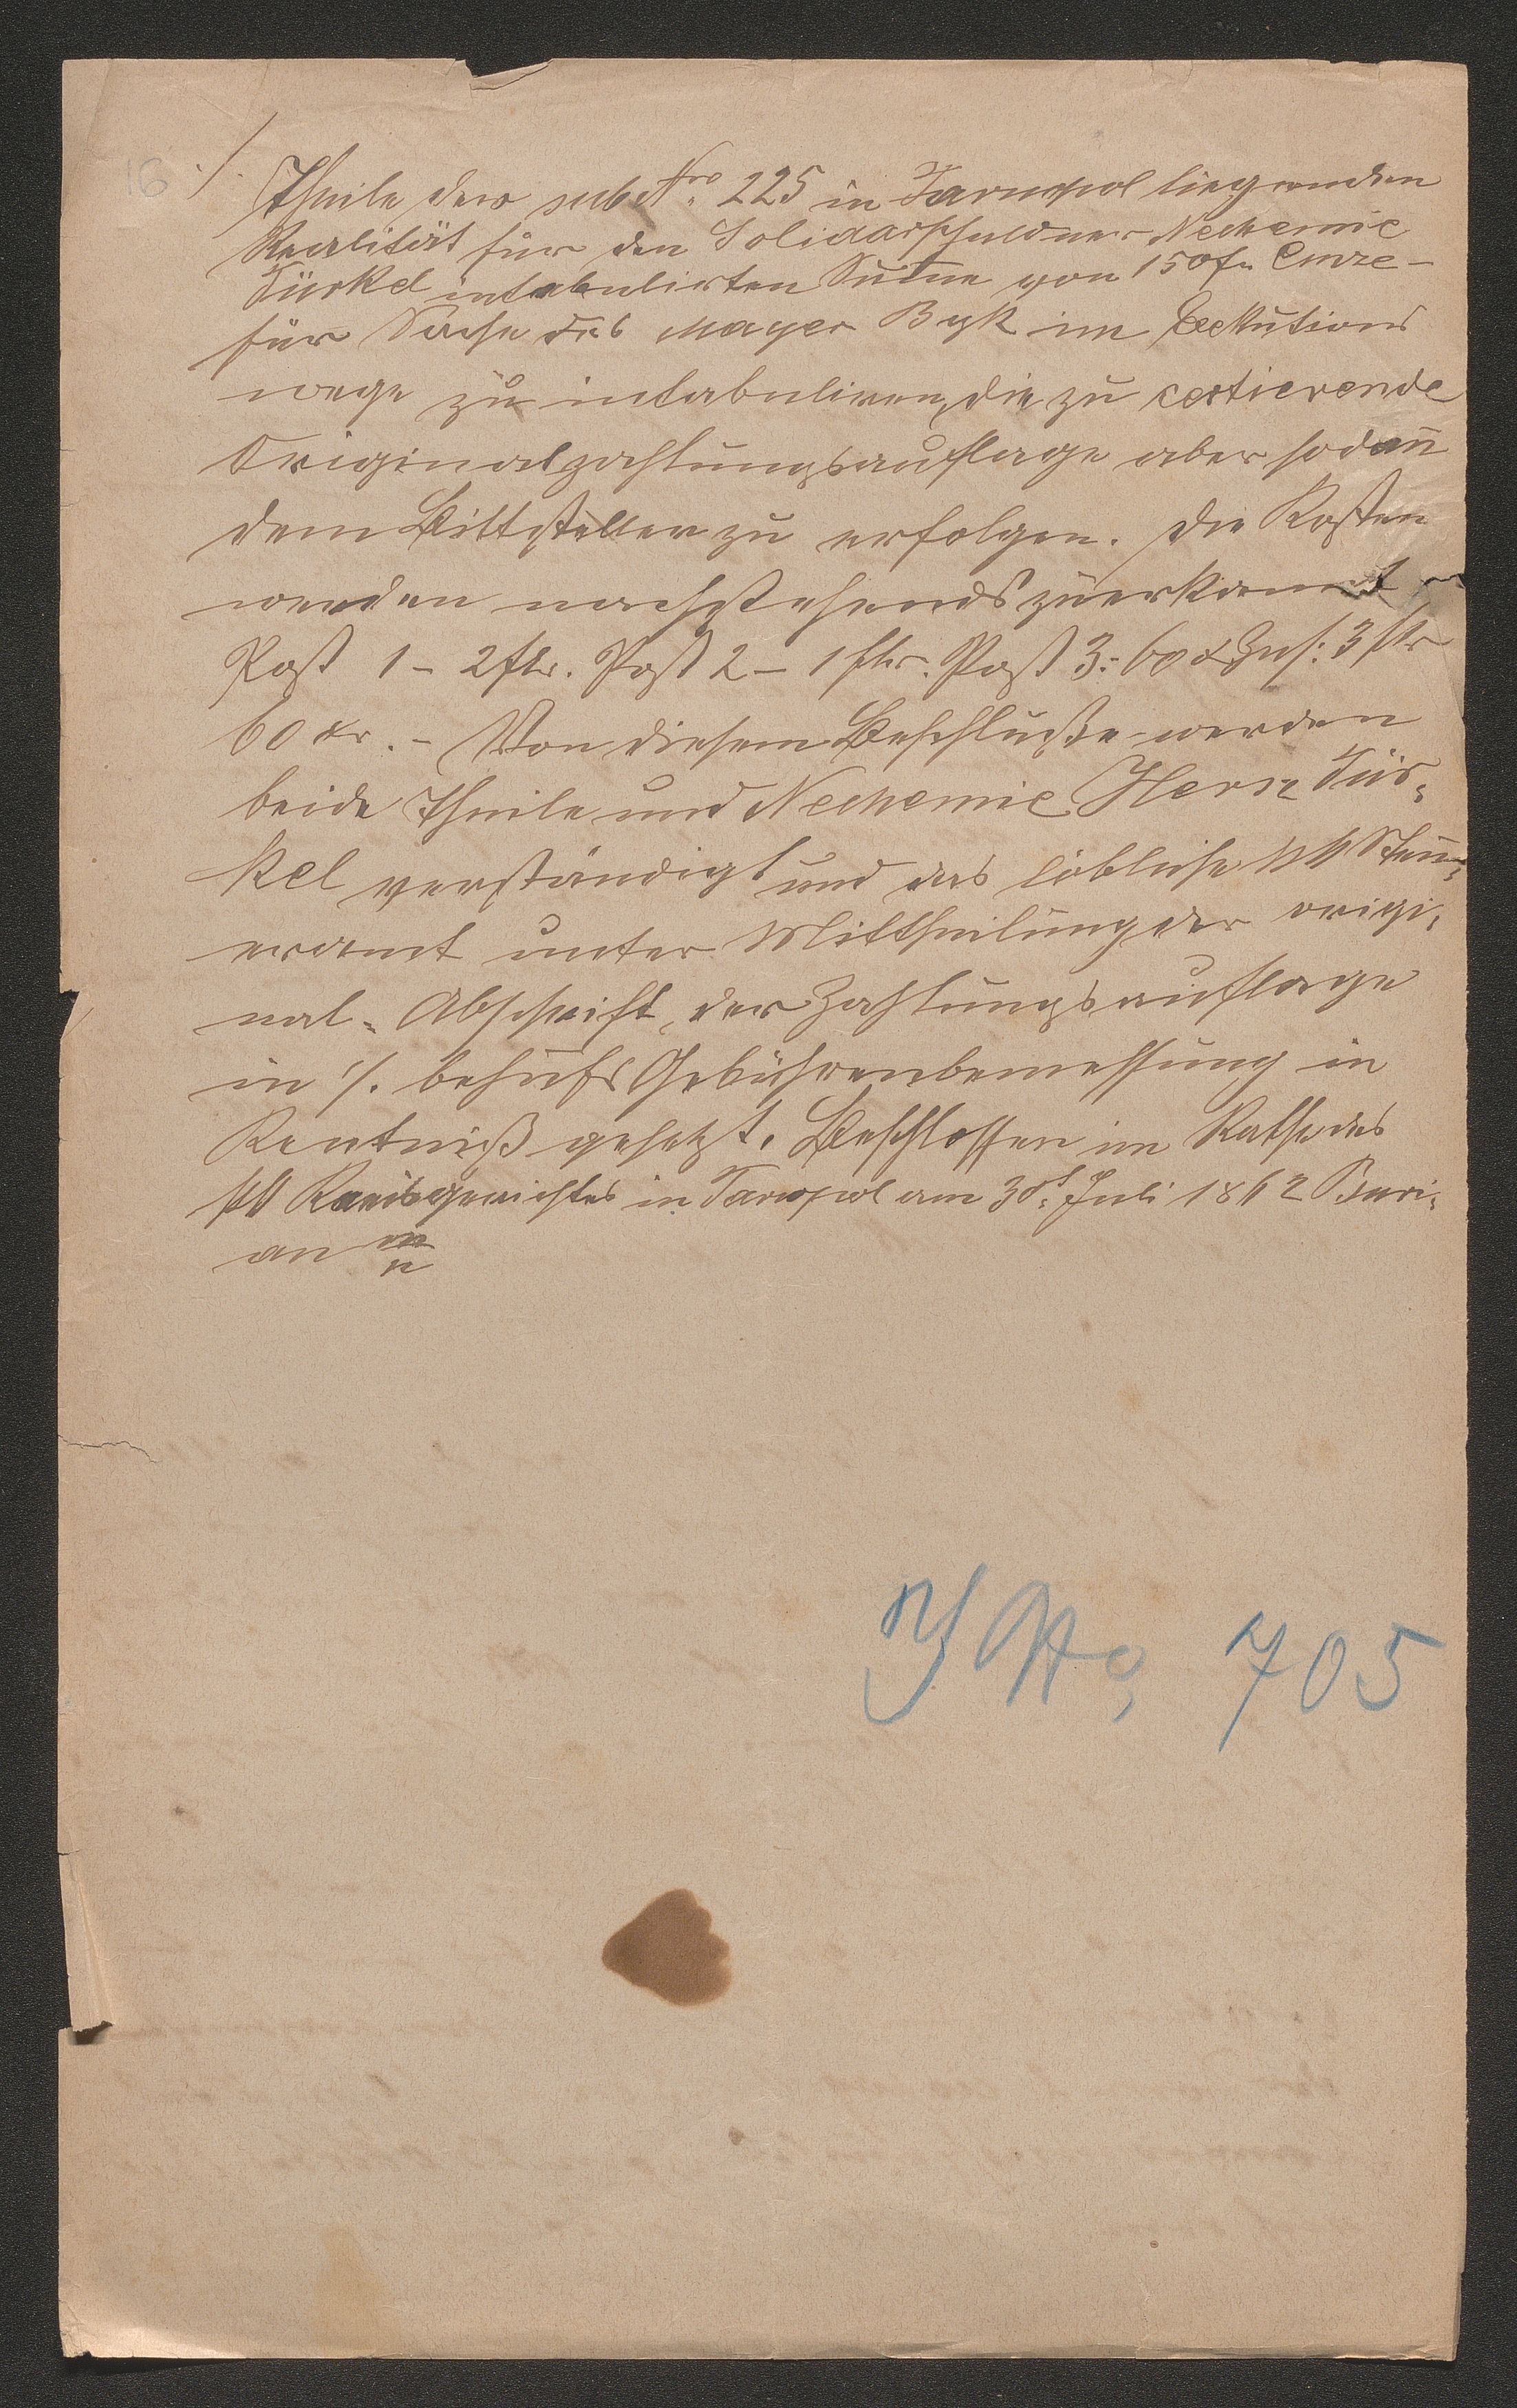 16 ./.
Theile der sub Nro 225 in Tarnopol liegenden
Realität für den Solidarschuldner Nechemie
Türkel intabulirten Sume von 150 f.
für Sache des Mayer Byk im Exekutions
wege zu intabuliren, die zu
Originalzahlungsauflage aber sodañ
dem Bittsteller zu erfolgen. Die Kosten
werden nachstehends zuerkannt
Post 1 - 2 flr. Post 2 - 1 flr. Post 3: 60 x Zus: 3 flr
60 xr. - Von diesem Beschluße werden
beide Theile und Nechemie Hersz Tür-
kel verständigt und das löbliche kk Steu-
eramt unter Mittheilung der origi-
nal-Abschrift, der Zahlungsauflage
in ./. behufs Gebührenbemessung in
Kentniß gesetzt. Beschlossen im Rathe des
kk Kreisgerichtes in Tarnopol am 30t: Juli 1862 Buri-
an
705